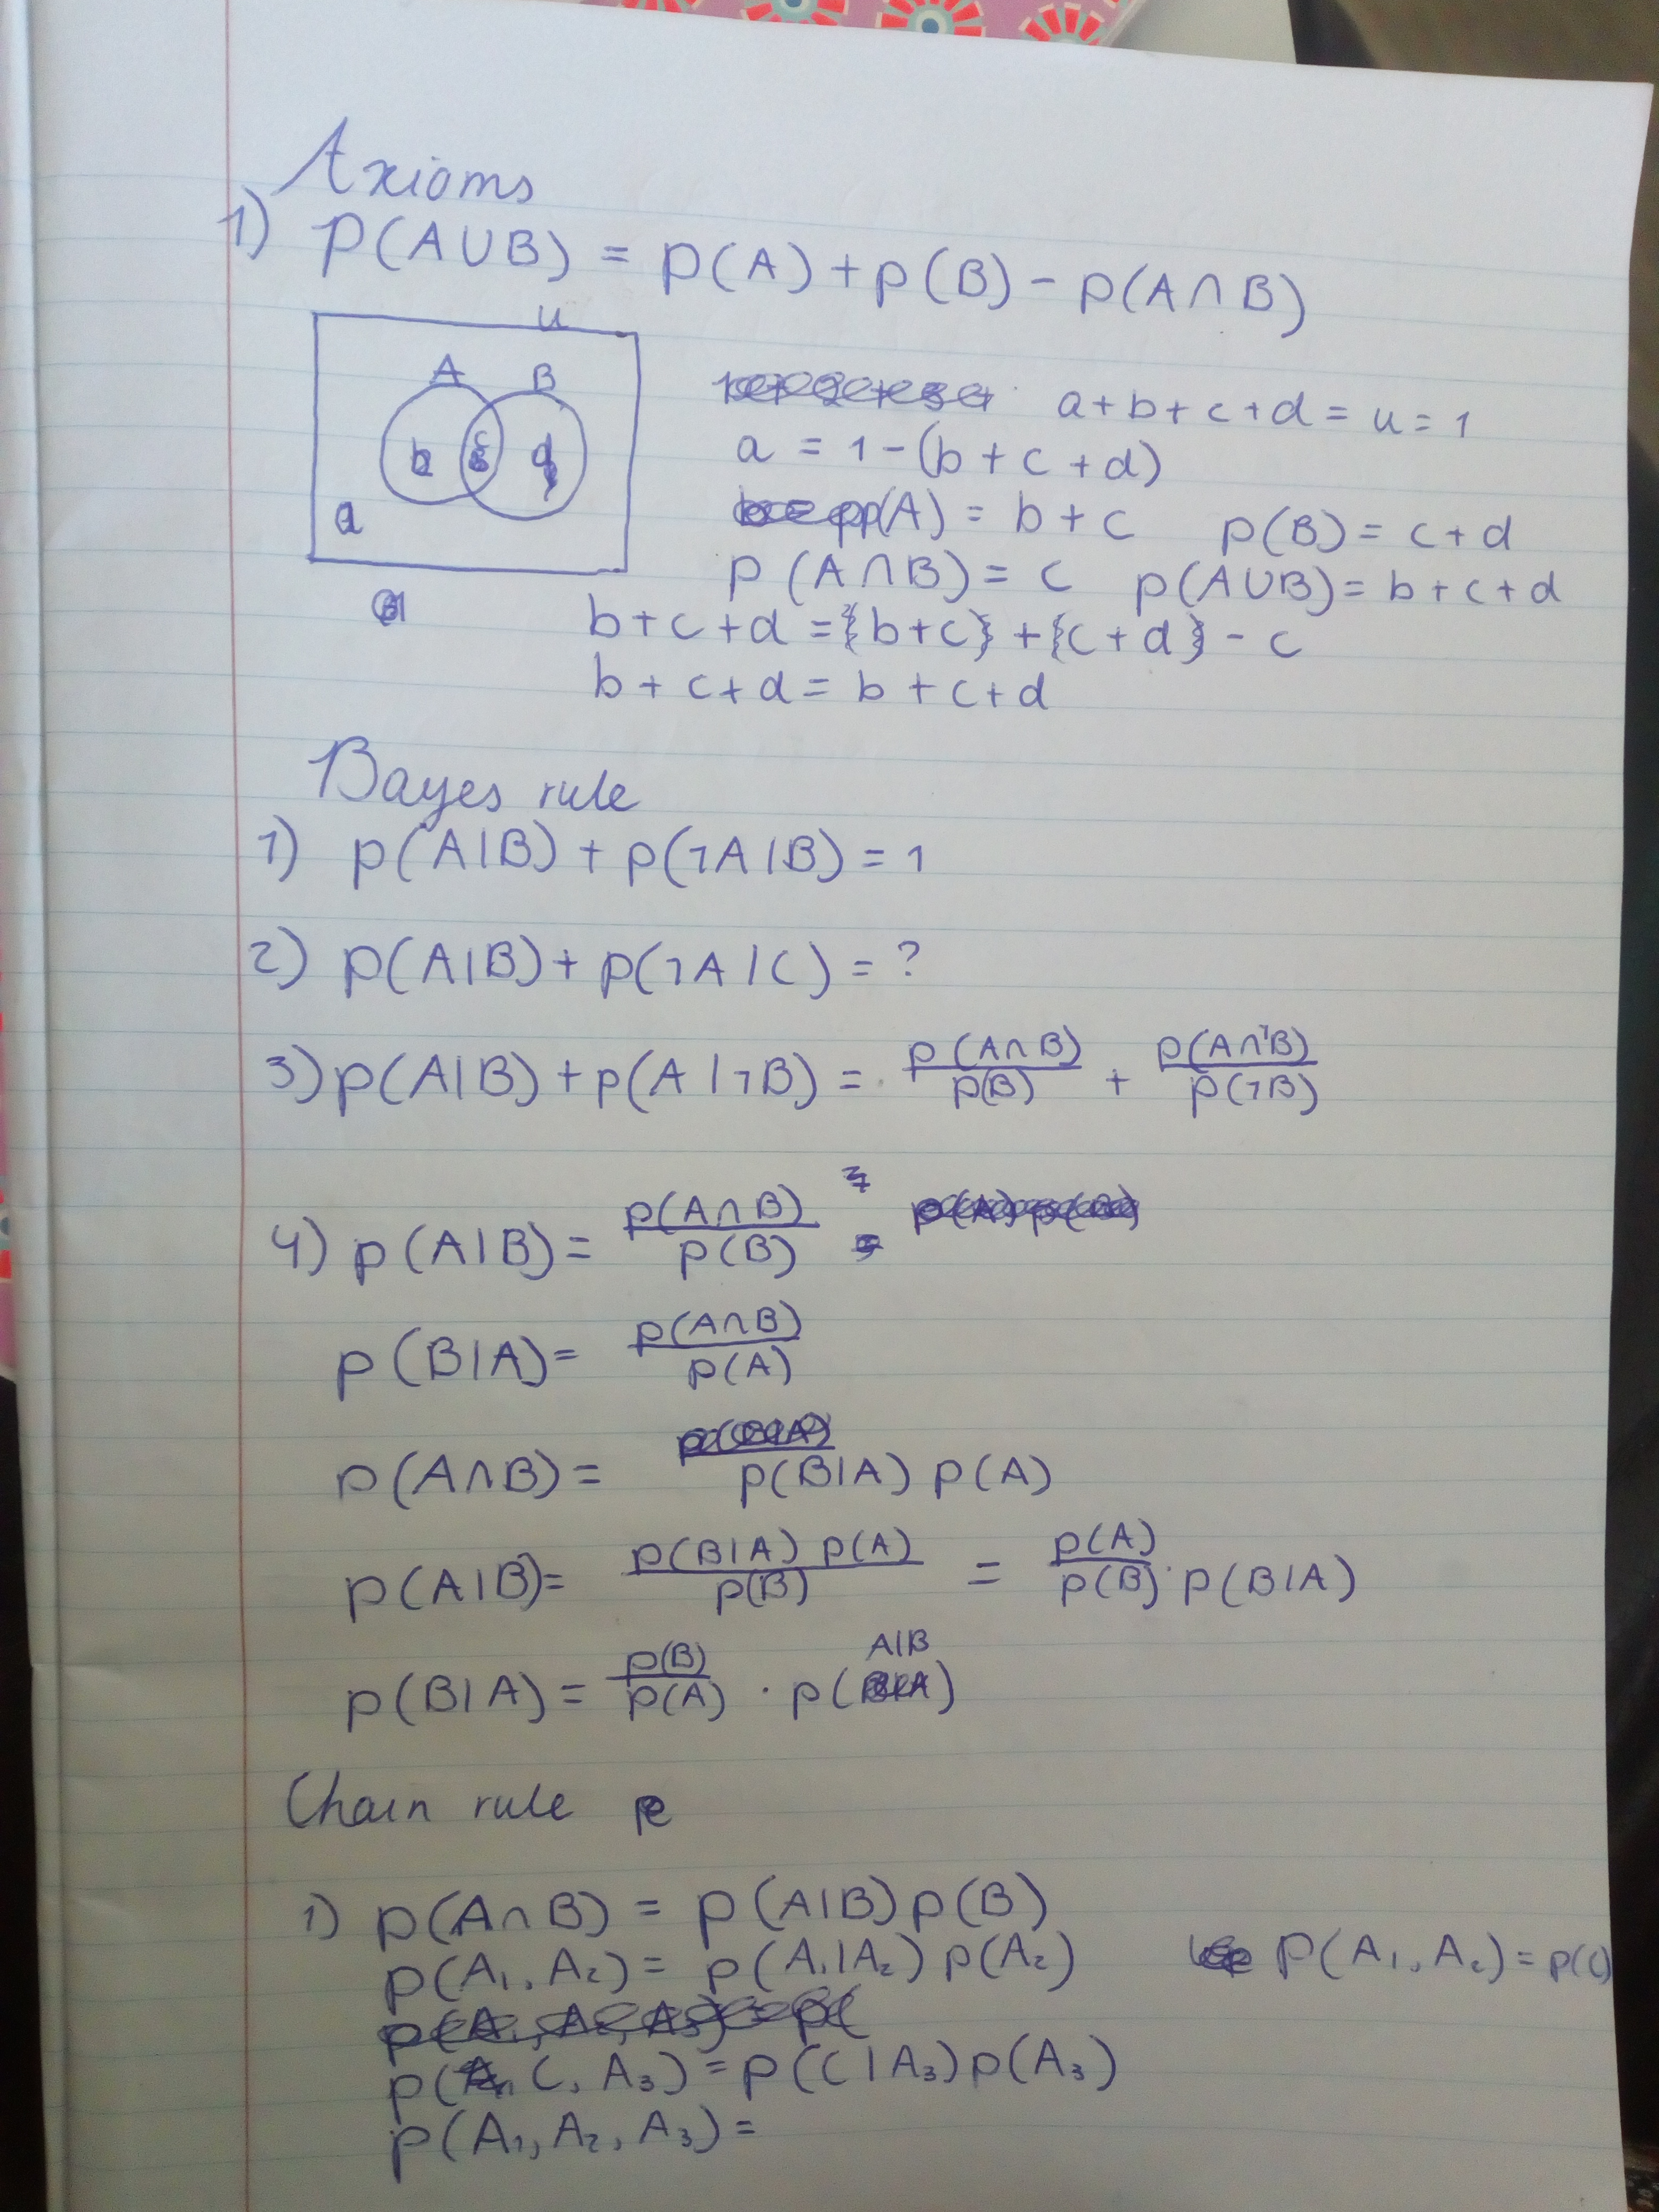 Axioms
1) P(A∪B) = p(A) + p(B) - p(A∩B)
u
A B
b c d
a
a+b+c+d = u = 1
a = 1-(b+c+d)
p(A) = b+c p(B) = c+d
p(A∩B) = c p(A∪B) = b+c+d
b+c+d = {b+c} + {c+d} - c
b+c+d = b+c+d
Bayes rule
1) p(A|B) + p(¬A|B) = 1
2) p(A|B) + p(¬A|C) = ?
3) p(A|B) + p(A|¬B) = p(A∩B)/p(B) + p(A∩¬B)/p(¬B)
4) p(A|B) = p(A∩B)/p(B)
p(B|A) = p(A∩B)/p(A)
p(A∩B) = p(B|A) p(A)
p(A|B) = p(B|A) p(A)/p(B) = p(A)/p(B) · p(B|A)
p(B|A) = p(B)/p(A) · p(A|B)
Chain rule
1) p(A∩B) = p(A|B) p(B)
p(A₁, A₂) = p(A₁|A₂) p(A₂) P(A₁, A₂) = p(C)
p(C, A₃) = p(C|A₃) p(A₃)
p(A₁, A₂, A₃) =